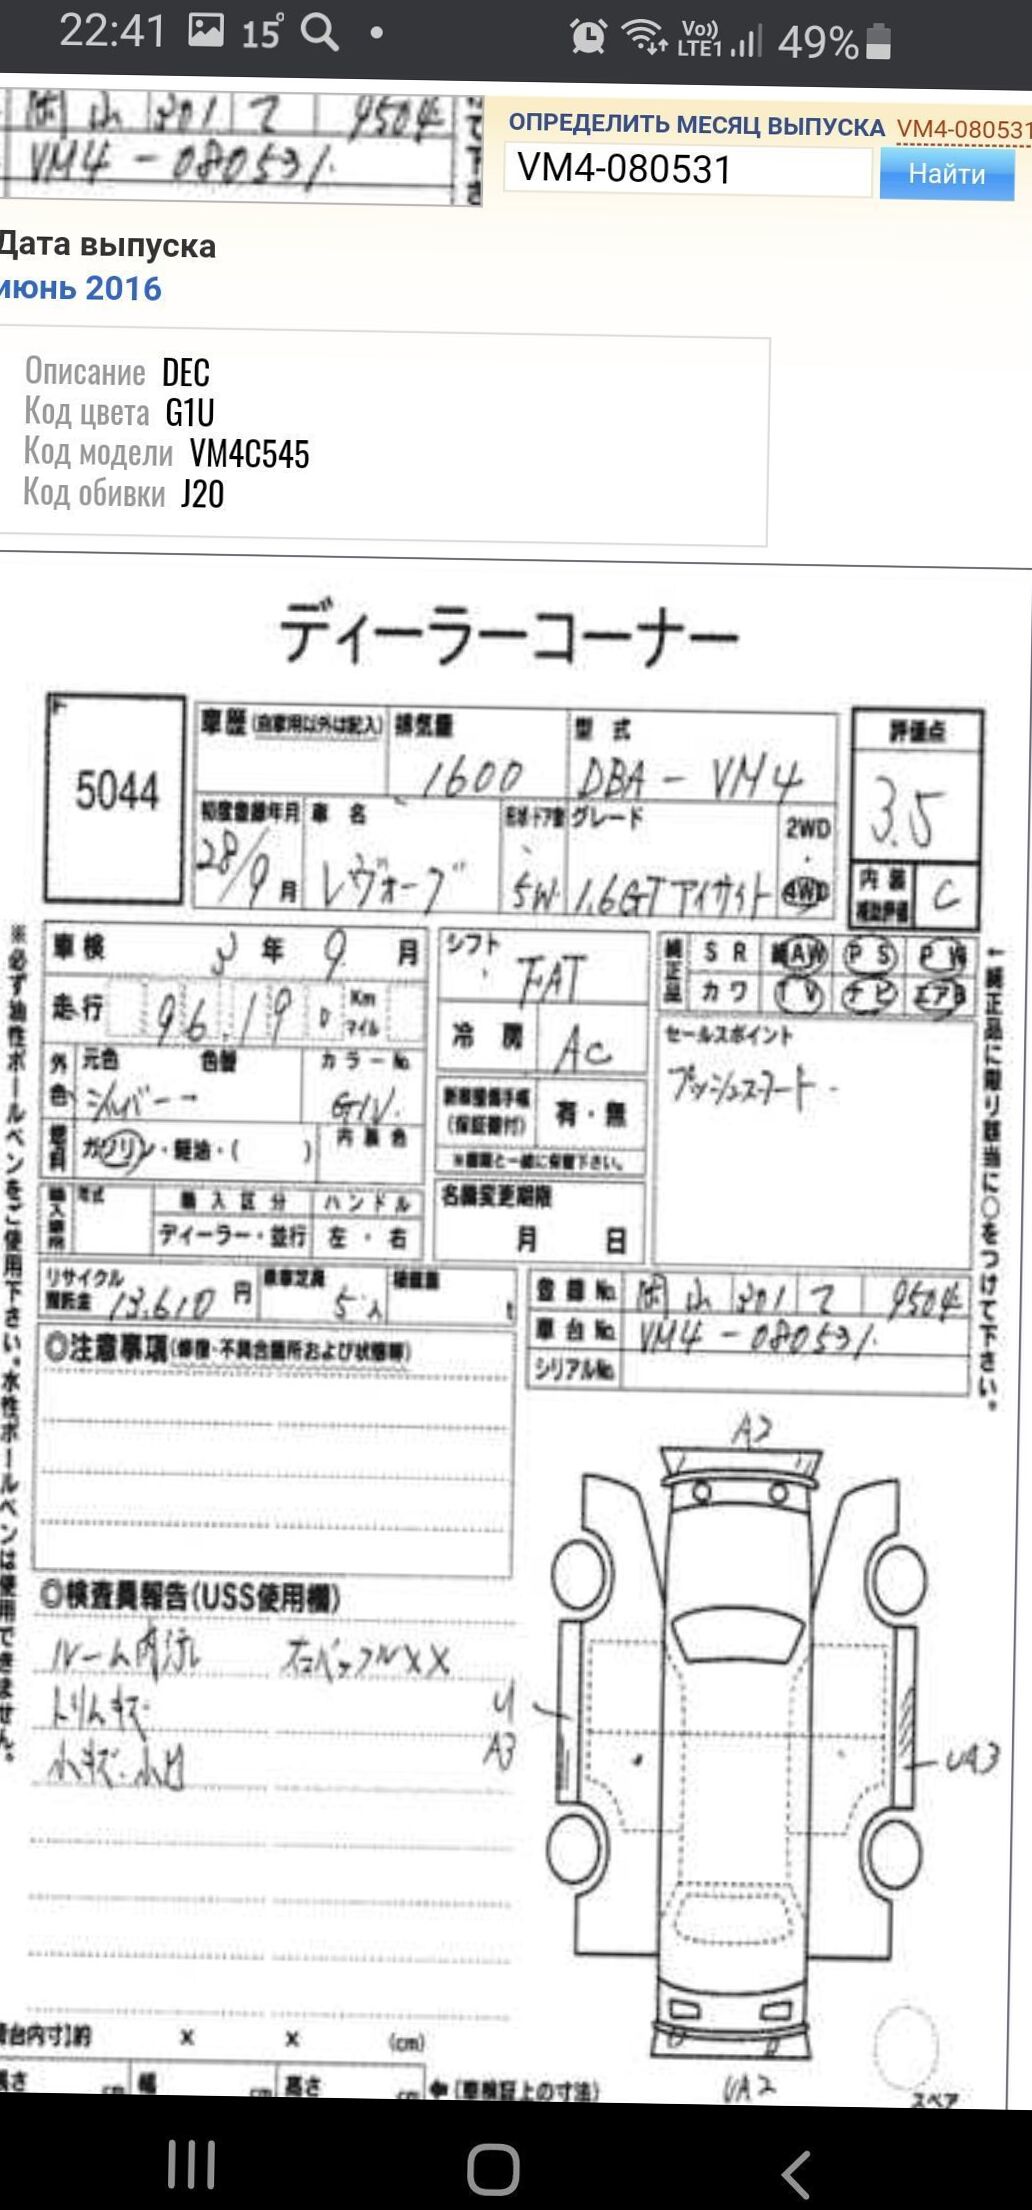 22:41 15° 49%
Vo)) LTE1
岡山 301 て 9504
VM4-080531
ОПРЕДЕЛИТЬ МЕСЯЦ ВЫПУСКА VM4-080531
VM4-080531 Найти
Дата выпуска
июнь 2016
Описание DEC
Код цвета G1U
Код модели VM4C545
Код обивки J20
ディーラーコーナー
5044
車歴(自家用以外は記入) 排気量 型式 評価点
1600 DBA-VM4 3.5
初度登録年月 車名 形状・ドア数 グレード 2WD・4WD
28/9月 レヴォーグ 5W 1.6GTアイサイト
内装 補助評価 C
車検 3年 9月 シフト FAT
純正品 SR AW PS PW
カワ TV ナビ エアB
走行 96.19 Km マイル
冷房 AC
セールスポイント
プッシュスタート
外色 元色 色替 カラーNo.
シルバー G1U
新車整備手帳(保証書付) 有・無
※書類と一緒に保管下さい。
燃料 ガソリン・軽油・( ) 内装色
輸入車 年式 輸入区分 ハンドル
ディーラー・並行 左・右
名義変更期限
月 日
リサイクル預託金 13.610円 乗車定員 5人 積載量 t
登録No. 岡山 301 て 9504
車台No. VM4-080531
シリアルNo.
◎注意事項(修復・不具合箇所および状態等)
◎検査員報告(USS使用欄)
ルーム内汚れ
トリムキズ
小キズ・小凹
A2
U
A3
UA3
UA2
荷台内寸]約 x x (cm)
長さ cm 幅 cm 高さ cm ←(車検証上の寸法)
スペア
※必ず油性ボールペンをご使用下さい。水性ボールペンは使用できません。
←純正品に限り該当に○をつけて下さい。